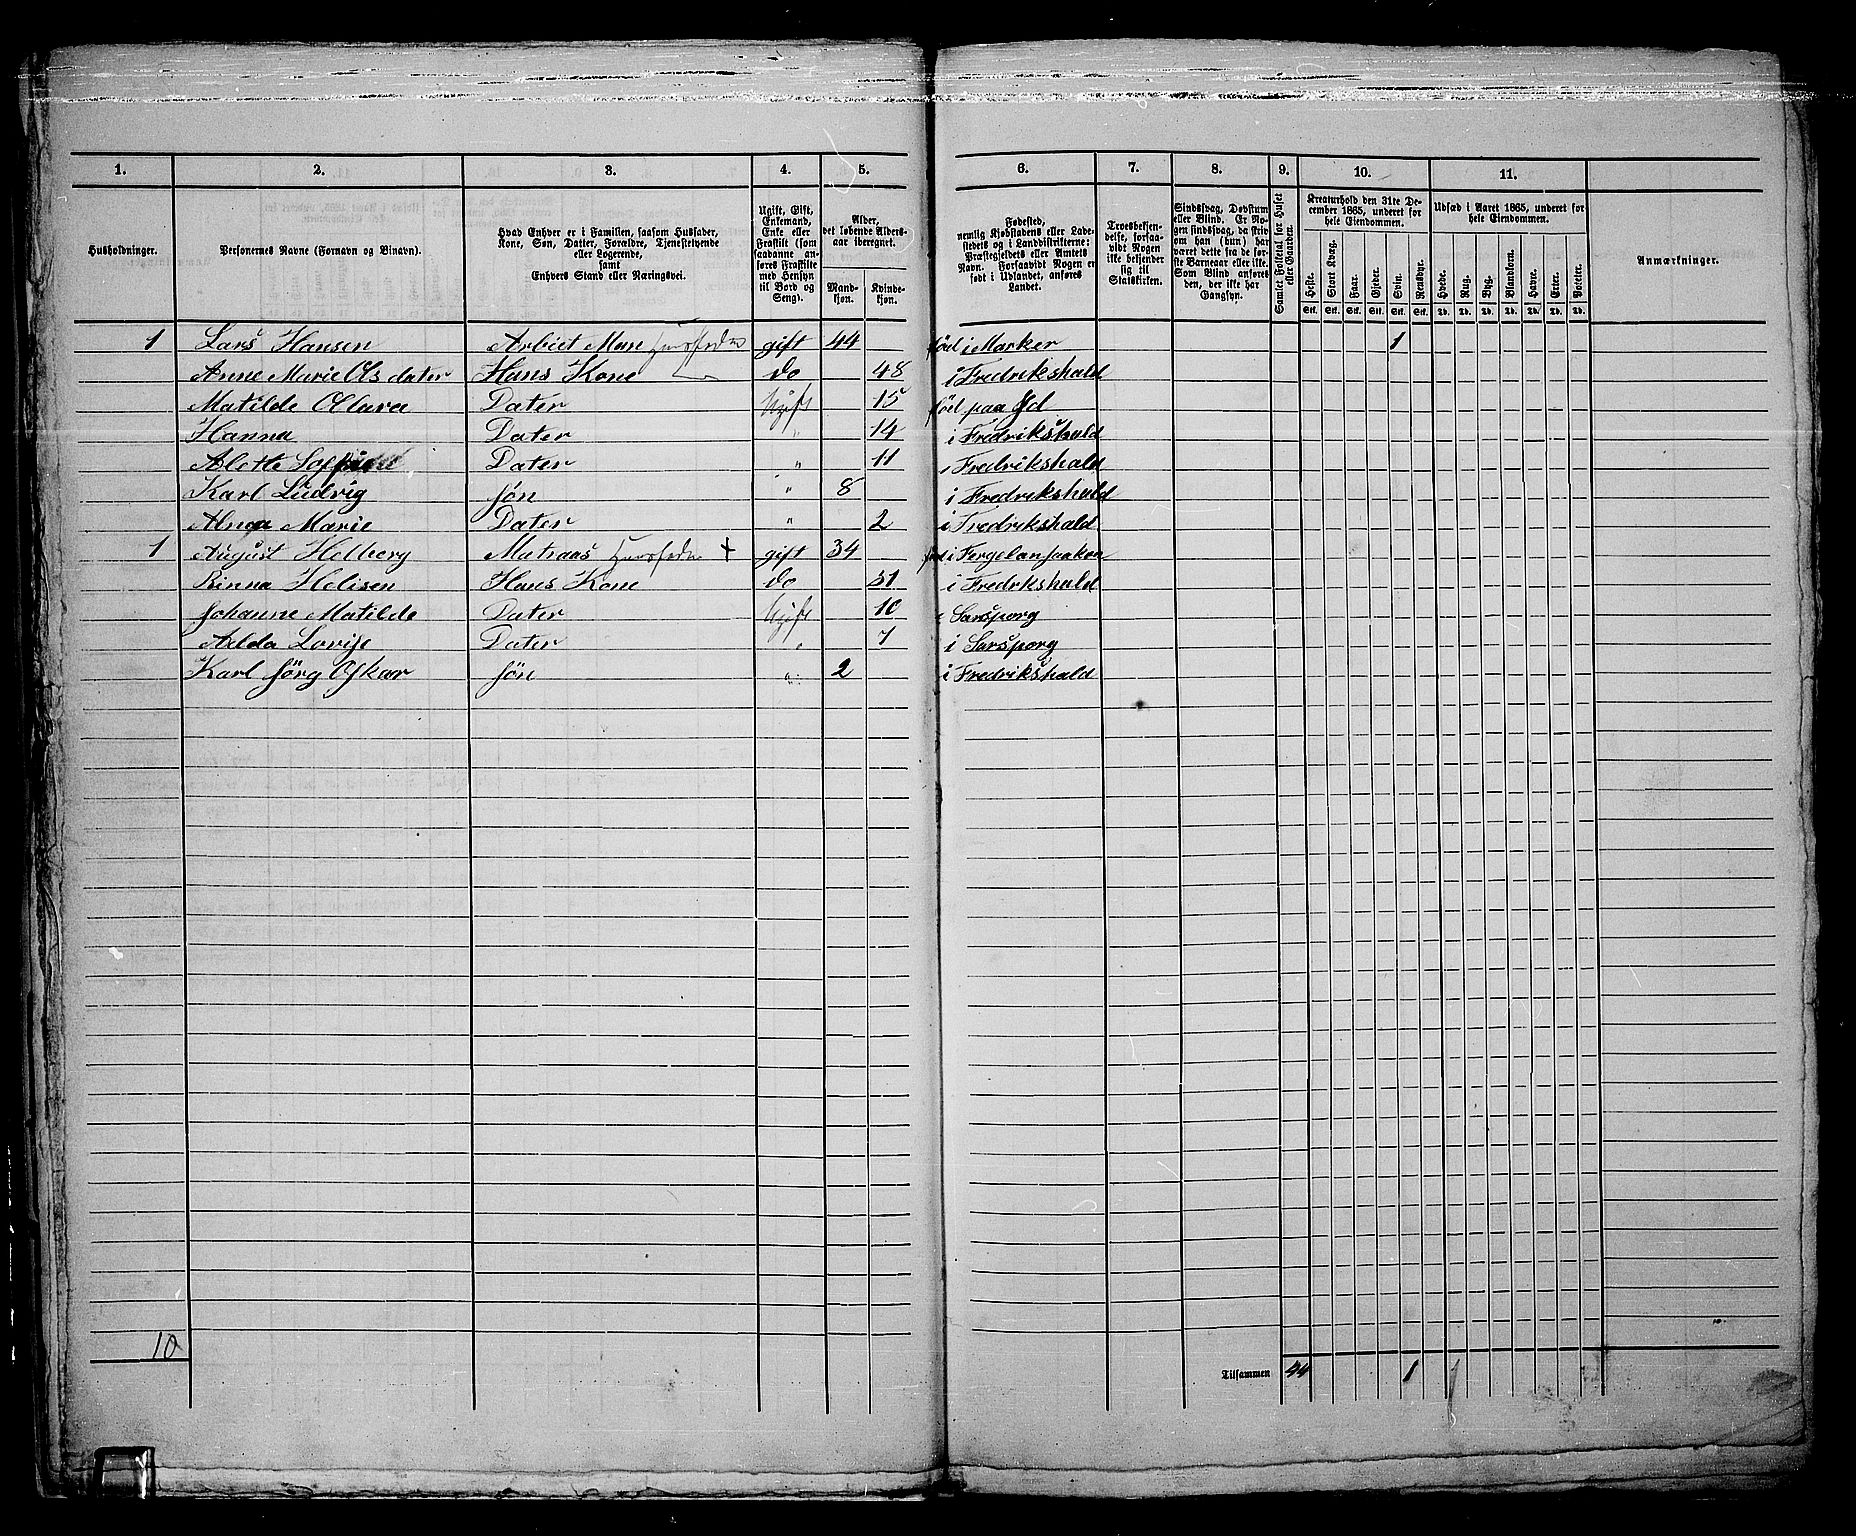 1. 2. 3. 4. 5. 6. 7. 8. 9. 10. 11.
Husholdninger.
Personernes Navne (Fornavn og Binavn).
Hvad Enhver er i Familien, saasom Husfader,
Kone, Søn, Datter, Forældre, Tjenestetyende
eller Logerende,
samt
Enhvers Stand eller Næringsvei.
Ugift, Gift,
Enkemand,
Enke eller
Fraskilt (som
saadanne an-
føres Fraskilte
med Hensyn
til Bord og
Seng).
Alder,
det løbende Alders-
aar iberegnet.
Mand-
kjøn.
Kvinde-
kjøn.
Fødested,
nemlig Kjøbstadens eller Lade-
stedets og i Landdistrikterne:
Præstegjeldets eller Amtets
Navn. Forsaavidt Nogen er
født i Udlandet, anføres
Landet.
Troesbekjen-
delse, forsaa-
vidt Nogen
ikke bekjender
sig til
Statskirken.
Sindssvag, Døvstum
eller Blind. Er No-
gen sindssvag, da skriv
om han (hun) har
været dette fra de før-
ste Barneaar eller ikke.
Som Blind anføres
den, der ikke har
Gangsyn.
Samlet Folketal for Huset
eller Gaarden.
Kreaturhold den 31te De-
cember 1865, underet for
hele Eiendommen.
Heste. Stort Kvæg. Faar. Gjeder. Svin. Rensdyr.
Stk. Stk. Stk. Stk. Stk. Stk.
Udsæd i Aaret 1865, underet for
hele Eiendommen.
Hvede. Rug. Byg. Blandkorn. Havre. Erter. Poteter.
Td. Td. Td. Td. Td. Td. Td.
Anmærkninger.
1 Lars Hansen Arbiet Man Huusfader gift 44 föd i Marker 1
Anne Marie Ols dater Hans Kone do 48 i Fredrikshald
Matilde Olava Dater Ugift 15 föd paa Id
Hanna Dater " 14 i Fredrikshald
Alette Dater " 11 i Fredrikshald
Karl Ludvig sön " 8 i Fredrikshald
Marie Dater " 2 i Fredrikshald
1 August Helberg Matraas Huusfader + gift 34 i
Helisen Hans Kone do 31 i Fredrikshald
Johanne Matilde Dater Ugift 10 i Sarsporg
Lovise Dater " 7 i Sarsporg
Karl Jörg Oskar sön " 2 i Fredrikshald
10
Tilsammen 44 1